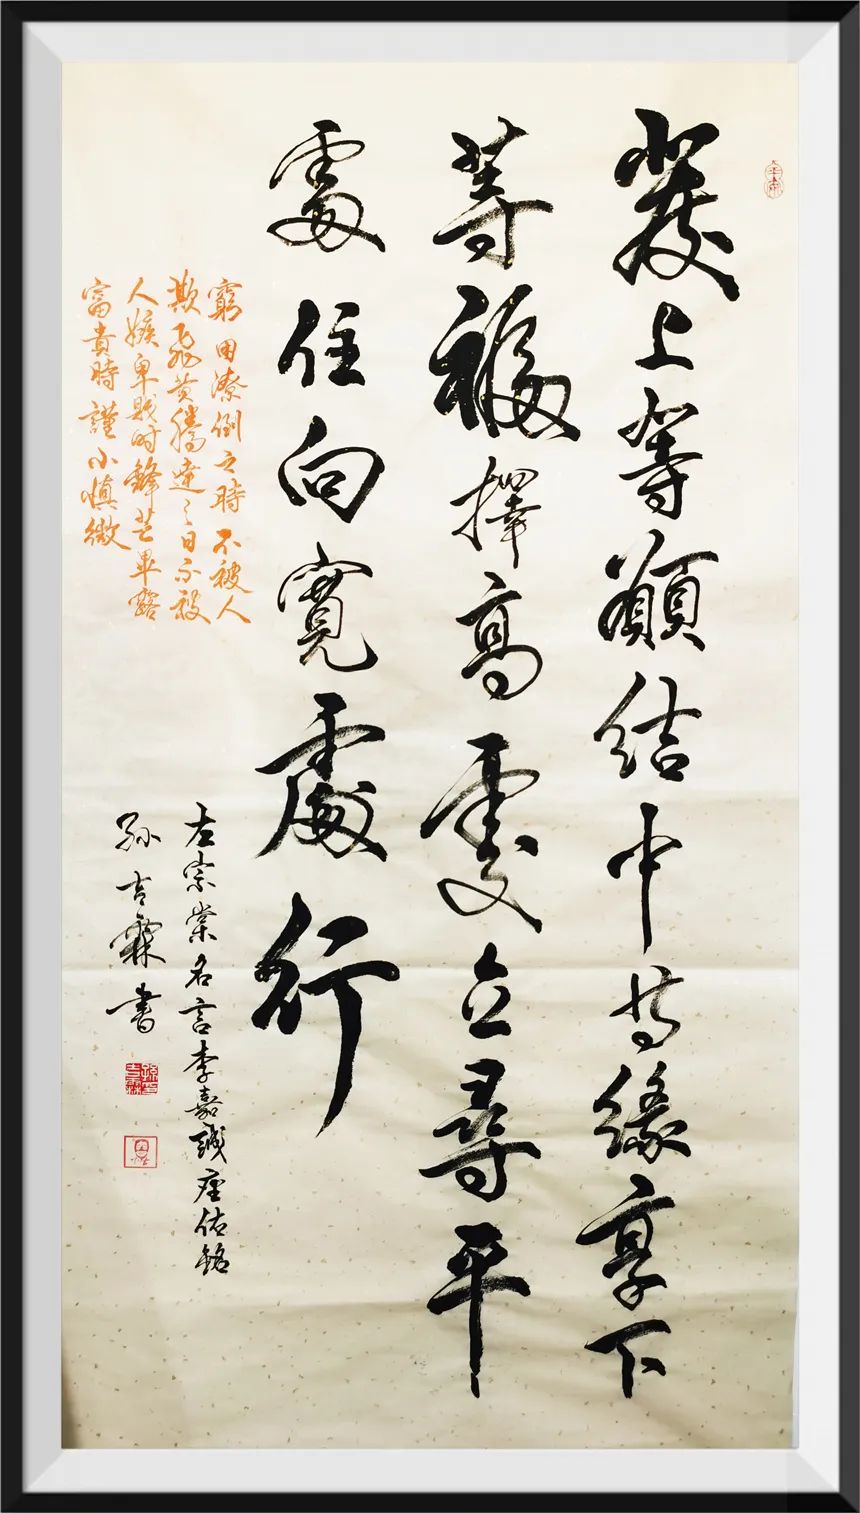 發上等願結中等緣享下
等福擇高處立尋平
處住向寬處行
窮困潦倒之時不被人
欺飛黃騰達之日不被
人嫉卑賤時鋒芒畢露
富貴時謹小慎微
左宗棠名言李嘉誠座佑銘
孫吉霖書